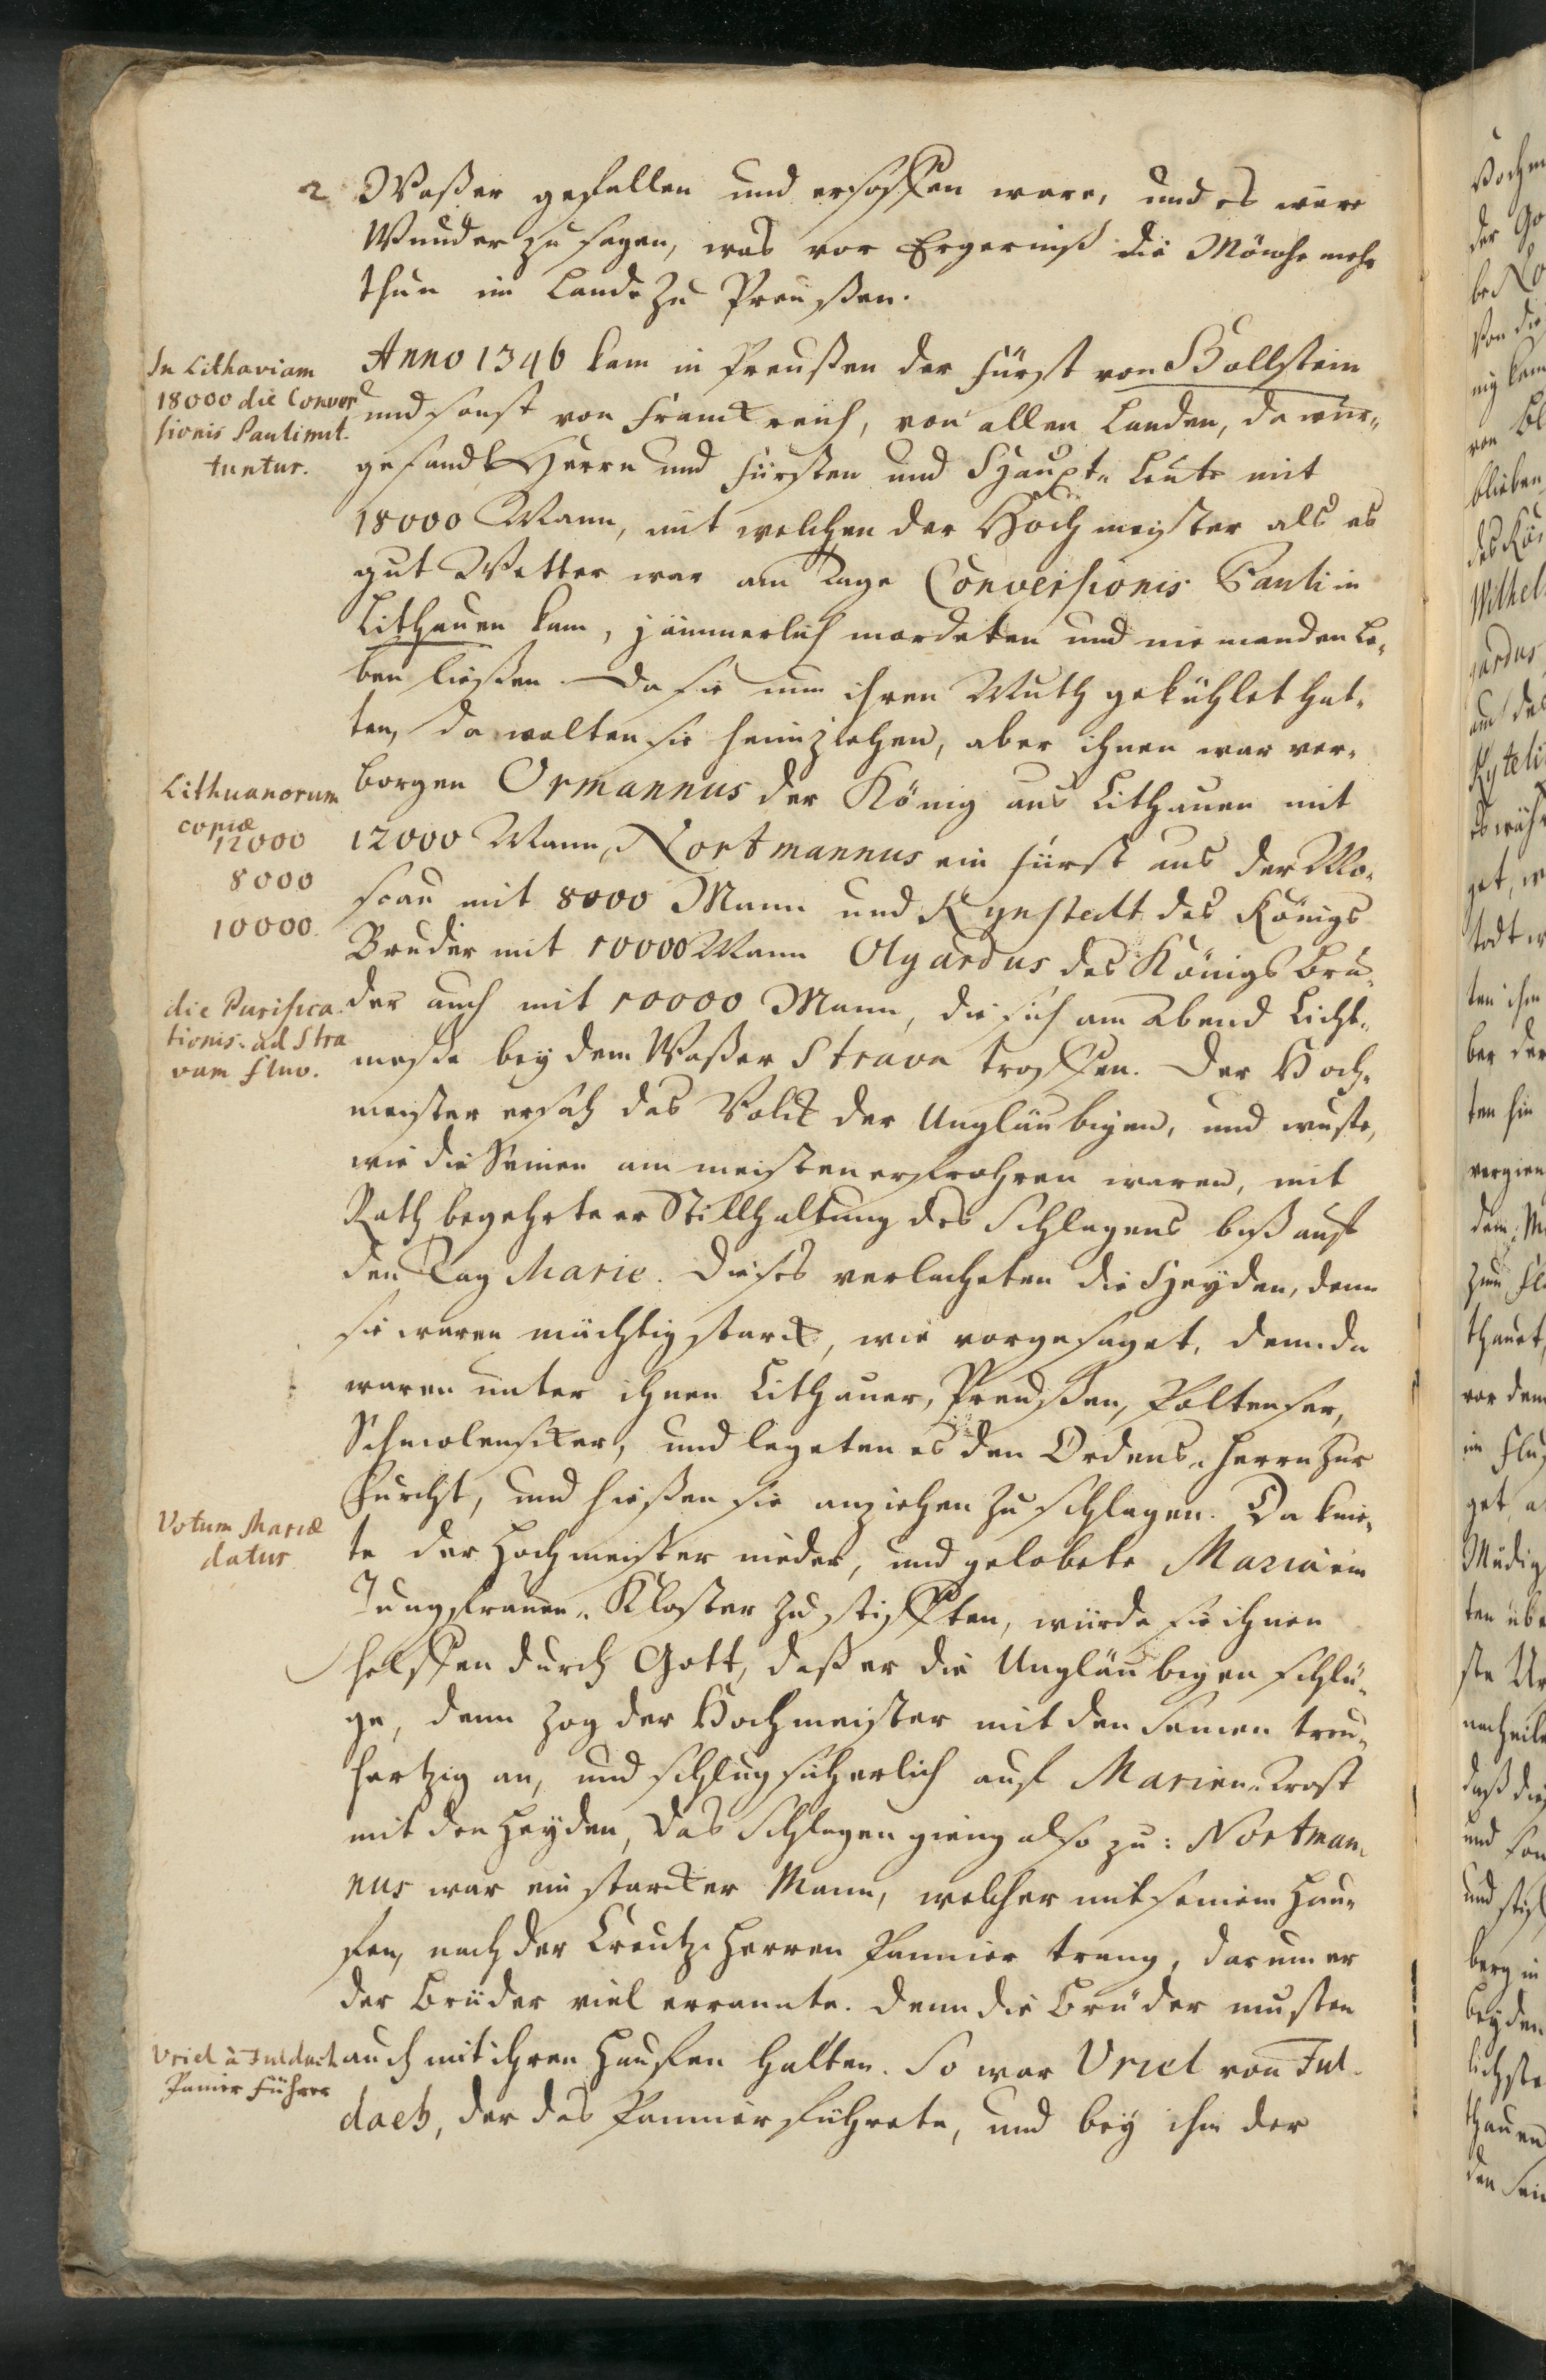 2 Waßer gefallen und ersoffen ware, und es wäre
Wunder zu sagen, was vor Ergerniß die Mönche mehr
thun im Lande zu Preußen.
In Lithaviam
18000 die Conver
sionis Pauli mit
tuntur.
Anno 1346 kam in Preußen der Fürst von Hollstein
und sonst von Franckreich, von allen Landen, da wur„
gesandt Herrn und Fürsten und Haupt„Leute mit
18000 Mann, mit welchen der Hochmeister als es
gut Wetter war am Tage Conversionis Pauli in
Lithauen kam, jämmerlich mordeten und niemanden le„
ben ließen. Da sie nun ihren Muth gekühlet hat„
ten, da wolten sie heimziehen, aber ihnen war ver„
Lithuanorum
copiæ
12000
8000
10000.
borgen Ormannus der König aus Lithauen mit
12000 Mann, Nortmannus ein Fürst aus der Mo„
scau mit 8000 Mann und Kynstedt des Königs
Bruder mit 10000 Mann Olgardus des Königs Bru„
die Purifica
tionis. ad Stra
vam fluv.
der auch mit 10000 Mann, die sich am Abend Licht„
meße bey dem Waßer Strava troffen. Der Hoch„
meister ersah das Volck der Ungläubigen, und wuste,
wie die Seinen am meisten erfrohren waren, mit
Rath begehrte er Stillhaltung des Schlagens biß auf
den Tag Marie. Dieses verlacheten die Heyden, denn
sie waren mächtig starck, wie vorgesaget, denn da
waren unter ihnen Lithauer, Preußen,
Schmolenscker, und legeten es den Ordens„Herrn zur
Furcht, und hießen sie anziehen zu schlagen. Da knie„
Votum Mariæ
datur
te der Hochmeister nieder, und gelobete Maria ein
Jungfrauen„Kloster zu stifften, würde sie ihnen
helffen durch Gott, daß er die Ungläubigen schlü„
ge, denn zog der Hochmeister mit den Seinen treu„
hertzig an, und schlug sicherlich auf Marien„Trost
mit den Heyden, das Schlagen gieng also zu: Nortman„
nus war ein starcker Mann, welcher mit seinem Hau„
fen, nach der Creutz„Herren Pannier trang, darum er
der Brüder viel errannte. denn die Brüder musten
Vriel à Tuldach
Panier Führer
auch mit ihren Haufen halten. So war Vriel von Tul„
dach, der das Pannier führete, und bey ihm der